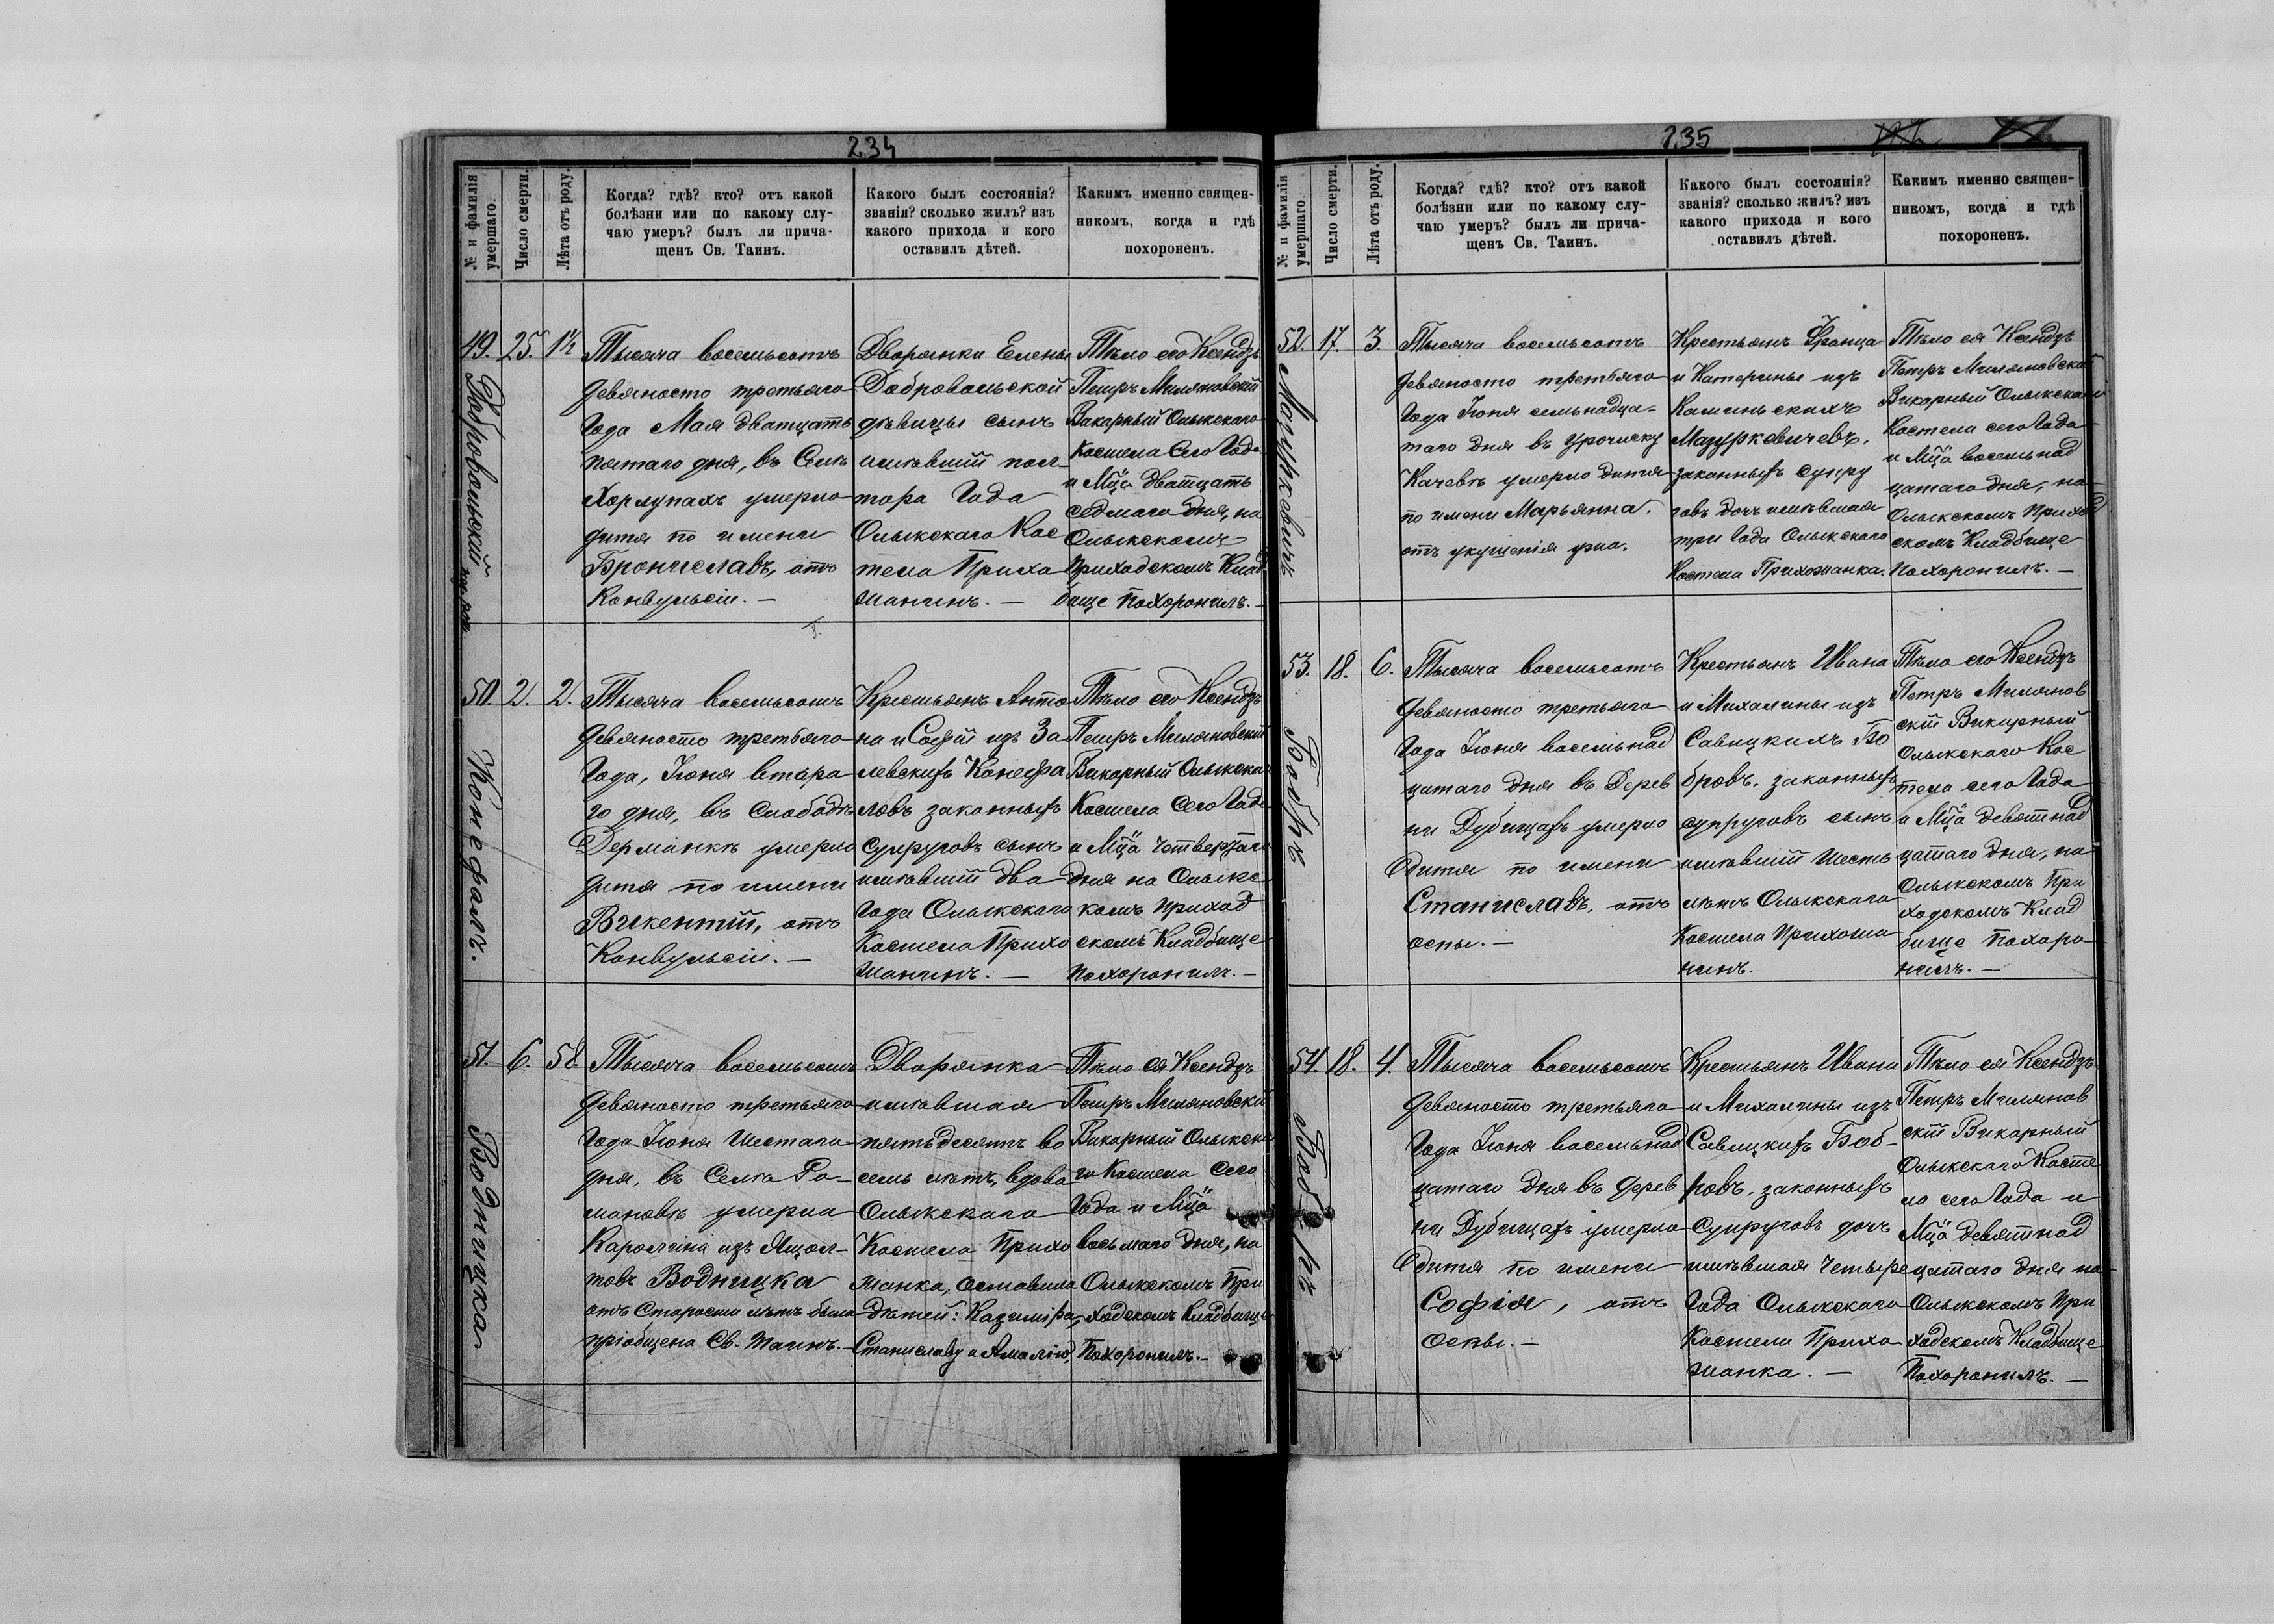 234
№ и фамилія умершаго.
Число смерти.
Лѣта отъ роду.
Когда? гдѣ? кто? отъ какой
болѣзни или по какому слу-
чаю умеръ? былъ ли прича-
щенъ Св. Таинъ.
Какого былъ состоянія?
званія? сколько жилъ? изъ
какого прихода и кого
оставилъ дѣтей.
Какимъ именно священ-
никомъ, когда и гдѣ
похороненъ.
49.
Добровольскій
25.
1½
Тысяча восемьсотъ
девяносто третьяго
Года Мая дватцать
пятаго дня, въ Селѣ
Хорлупахъ умерло
дитя по имени
Брониславъ, отъ
Конвульсіи. —
Дворянки Елены
Добровольской
дѣвицы сынъ
имѣвшій пол-
тора Года
Олыкскаго Кос
тела Прихо
жанинъ. —
Тѣло его Ксендзъ
Петръ Миляновскій
Викарный Олыкскаго
Костела Сего Года
и Мца дватцать
седмаго дня, на
Олыкскомъ
Приходскомъ Клад
бище Похоронилъ. —
50.
Конефалъ.
2.
2.
Тысяча восемьсотъ
девяносто третьяго
Года, Іюня втара
го дня, въ Слободѣ
Дерманкѣ умерло
дитя по имени
Викентій, отъ
Конвульсіи. —
Крестьянъ Анто
на и Софіи изъ За
левскихъ Конефа
ловъ законныхъ
Супруговъ сынъ
имѣвшій два
Года Олыкскаго
Костела Прихо
жанинъ. —
Тѣло его Ксендзъ
Петръ Миляновскій
Викарный Олыкскаго
Костела Сего Года
и Мца Четвертаго
дня на Олыкс
комъ приход
скомъ Кладбище
Похоронилъ. —
51.
Водницка
6.
58.
Тысяча восемьсотъ
девяносто третьяго
Года Іюня Шестаго
дня, въ Селѣ Ро-
мановѣ умерла
Каролина изъ Яцол-
товъ Водницка
отъ Старости лѣтъ была
пріобщена Св. Таинъ. —
Дворянка
имѣвшая
пятьдесятъ во
семь лѣтъ, вдова
Олыкскаго
Костела Прихо
жанка, оставила
дѣтей: Казиміра,
Станиславу и Амалію,
Тѣло ея Ксендзъ
Петръ Миляновскій
Викарный Олыкска
го Костела Сего
Года и Мца
восьмаго дня, на
Олыкскомъ При
ходскомъ Кладбище
Похоронилъ. —
235
№ и фамилія умершаго.
Число смерти.
Лѣта отъ роду.
Когда? гдѣ? кто? отъ какой
болѣзни или по какому слу-
чаю умеръ? былъ ли прича-
щенъ Св. Таинъ.
Какого былъ состоянія?
званія? сколько жилъ? изъ
какого прихода и кого
оставилъ дѣтей.
Какимъ именно священ-
никомъ, когда и гдѣ
похороненъ.
52.
Мазуркевичъ
17.
3.
Тысяча восемьсотъ
девяносто третьяго
Года Іюня семьнадца-
таго дня въ урочиску
Качевѣ умерло дитя
по имени Марьянна.
отъ укушенія
Крестьянъ Франца
и Катерины изъ
Каминьскихъ
Мазуркевичевъ,
законныхъ Супру
говъ дочь имѣвшая
три Года Олыкскаго
Костела Прихожанка.
Тѣло ея Ксендзъ
Петръ Миляновскій
Викарный Олыкскаго
Костела сего Года
и Мца восемьнад
цатаго дня, на
Олыкскомъ Приход
скомъ Кладбище
Похоронилъ. —
53.
Бобръ
18.
6.
Тысяча восемьсотъ
девяносто третьяго
Года Іюня восемьнад
цатаго дня въ Дерев
ни Дубищахъ умерло
Дитя по имени
Станиславъ, отъ
оспы. —
Крестьянъ Ивана
и Михалины изъ
Савицкихъ Бо
бровъ, законныхъ
супруговъ сынъ
имѣвшій шесть
лѣтъ Олыкскаго
Костела Прихожа
нинъ.
Тѣло его Ксендзъ
Петръ Милянов
скій Викарный
Олыкскаго Кос
тела сего Года
и Мца девятнад
цатаго дня, на
Олыкскомъ При
ходскомъ Клад
бище Похоро
нилъ. —
54.
Бобръ
18.
4.
Тысяча восемьсотъ
девяносто третьяго
Года Іюня восемьнад
цатаго дня въ Дерев
ни Дубищахъ умерло
Дитя по имени
Софія, отъ
Оспы. —
Крестьянъ Ивана
и Михалины изъ
Савицкихъ Боб-
ровъ, законныхъ
Супруговъ дочь
имѣвшая Четыре
Года Олыкскаго
Костела Прихо
жанка. —
Тѣло ея Ксендзъ
Петръ Милянов
скій Викарный
Олыкскаго Косте
ла сего Года и
Мца девятнад
цатаго дня на
Олыкскомъ При
ходскомъ Кладбище
Похоронилъ. —